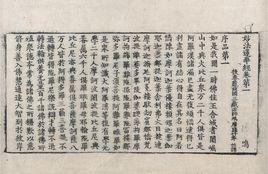 妙法蓮華經卷第一 鳴
後秦龜茲國三藏法師鳩摩羅什奉 詔譯
序品第一
如是我聞一時佛住王舍城耆闍崛
山中與大比丘衆萬二千人俱皆是
阿羅漢諸漏已盡無復煩惱逮得己
利盡諸有結心得自在其名曰阿若
憍陳如摩訶迦葉優樓頻螺迦葉伽
耶迦葉那提迦葉舍利弗大目揵連
摩訶迦旃延阿㝹樓馱劫賓那憍梵
波提離婆多畢陵伽婆蹉薄拘羅摩
訶拘絺羅難陀孫陀羅難陀富樓那
彌多羅尼子須菩提阿難羅睺羅如
是衆所知識大阿羅漢等復有學無
學二千人摩訶波闍波提比丘尼與
眷屬六千人俱羅睺羅母耶輸陀羅
比丘尼亦與眷屬俱菩薩摩訶薩八
萬人皆於阿耨多羅三藐三菩提不
退轉皆得陀羅尼樂說辯才轉不退
轉法輪供養無量百千諸佛於諸佛所
殖衆德本常為諸佛之所稱歎以慈
修身善入佛慧通達大智到於彼岸